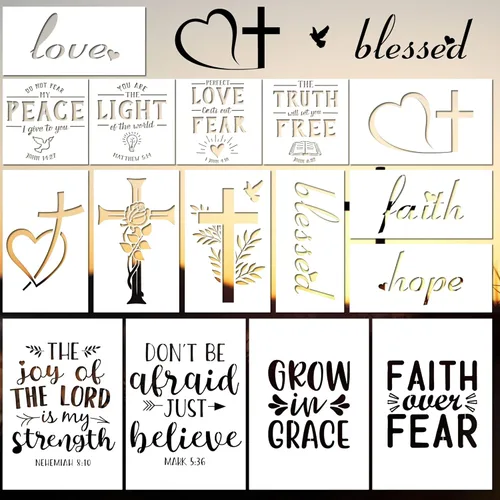 love
blessed
DO NOT FEAR
MY
PEACE
I give to you
JOHN 14:27
YOU ARE
THE
LIGHT
of the world
MATTHEW 5:14
PERFECT
LOVE
Casts out
FEAR
1 JOHN 4:18
THE
TRUTH
will set you
FREE
JOHN 8:32
blessed
faith
hope
THE
joy of
THE LORD
is my
strength
NEHEMIAH 8:10
DON'T BE
afraid
JUST
believe
MARK 5:36
GROW
in
GRACE
FAITH
over
FEAR